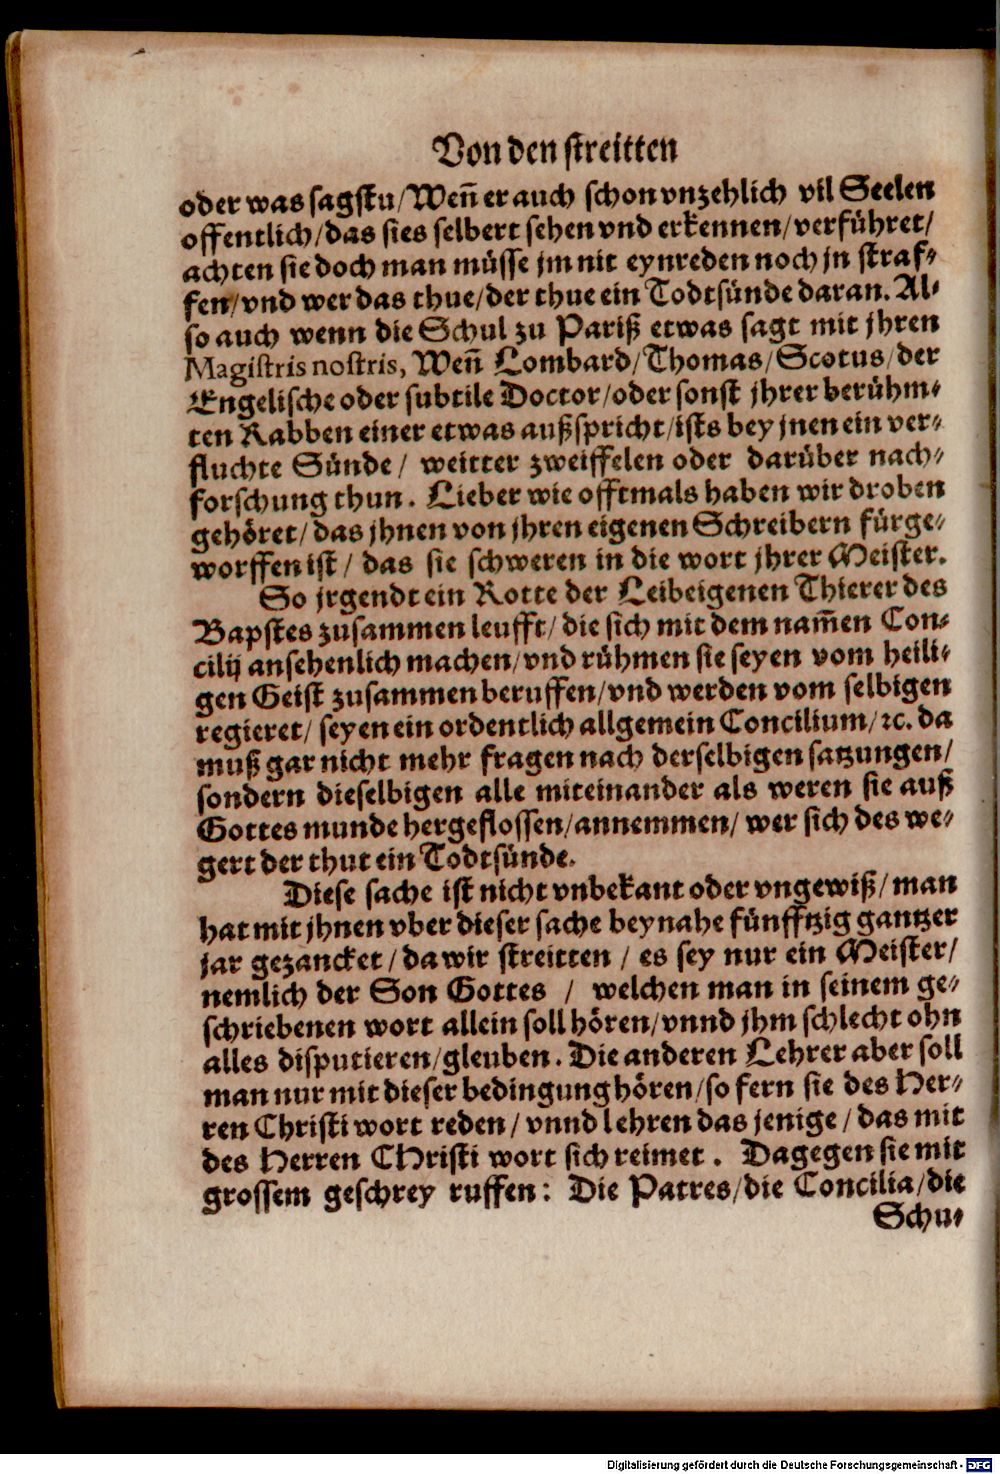 Von den streitten
oder was sagstu/Weñ er auch schon vnzehlich vil Seelen
offentlich/das sies selbert sehen vnd erkennen/verführet/
achten sie doch man müsse jm nit eynreden noch jn straf-
fen/vnd wer das thue/der thue ein Todtsünde daran. Al-
so auch wenn die Schul zu Pariß etwas sagt mit jhren
Magistris nostris, Weñ Lombard/Thomas/Scotus/der
Engelische oder subtile Doctor/oder sonst jhrer berühm-
ten Rabben einer etwas außspricht/ists bey jnen ein ver-
fluchte Sünde/ weitter zweiffelen oder darüber nach-
forschung thun. Lieber wie offtmals haben wir droben
gehöret/das jhnen von jhren eigenen Schreibern fürge-
worffen ist/ das sie schweren in die wort jhrer Meister.
So jrgendt ein Rotte der Leibeigenen Thierer des
Bapstes zusammen leufft/die sich mit dem nam̃en Con-
cilij ansehenlich machen/vnd rühmen sie seyen vom heili-
gen Geist zusammen beruffen/vnd werden vom selbigen
regieret/ seyen ein ordentlich allgemein Concilium/ꝛc. da
muß gar nicht mehr fragen nach derselbigen satzungen/
sondern dieselbigen alle miteinander als weren sie auß
Gottes munde hergeflossen/annemmen/ wer sich des we-
gert der thut ein Todtsünde.
Diese sache ist nicht vnbekant oder vngewiß/man
hat mit jhnen vber dieser sache bey nahe fünfftzig gantzer
jar gezancket/da wir streitten / es sey nur ein Meister/
nemlich der Son Gottes / welchen man in seinem ge-
schriebenen wort allein soll hören/vnnd jhm schlecht ohn
alles disputieren/gleuben. Die anderen Lehrer aber soll
man nur mit dieser bedingung hören/so fern sie des Her-
ren Christi wort reden/vnnd lehren das jenige/das mit
des Herren CHristi wort sich reimet. Dagegen sie mit
grossem geschrey ruffen: Die Patres/die Concilia/die
Schu-
Digitalisierung gefördert durch die Deutsche Forschungsgemeinschaft - DFG